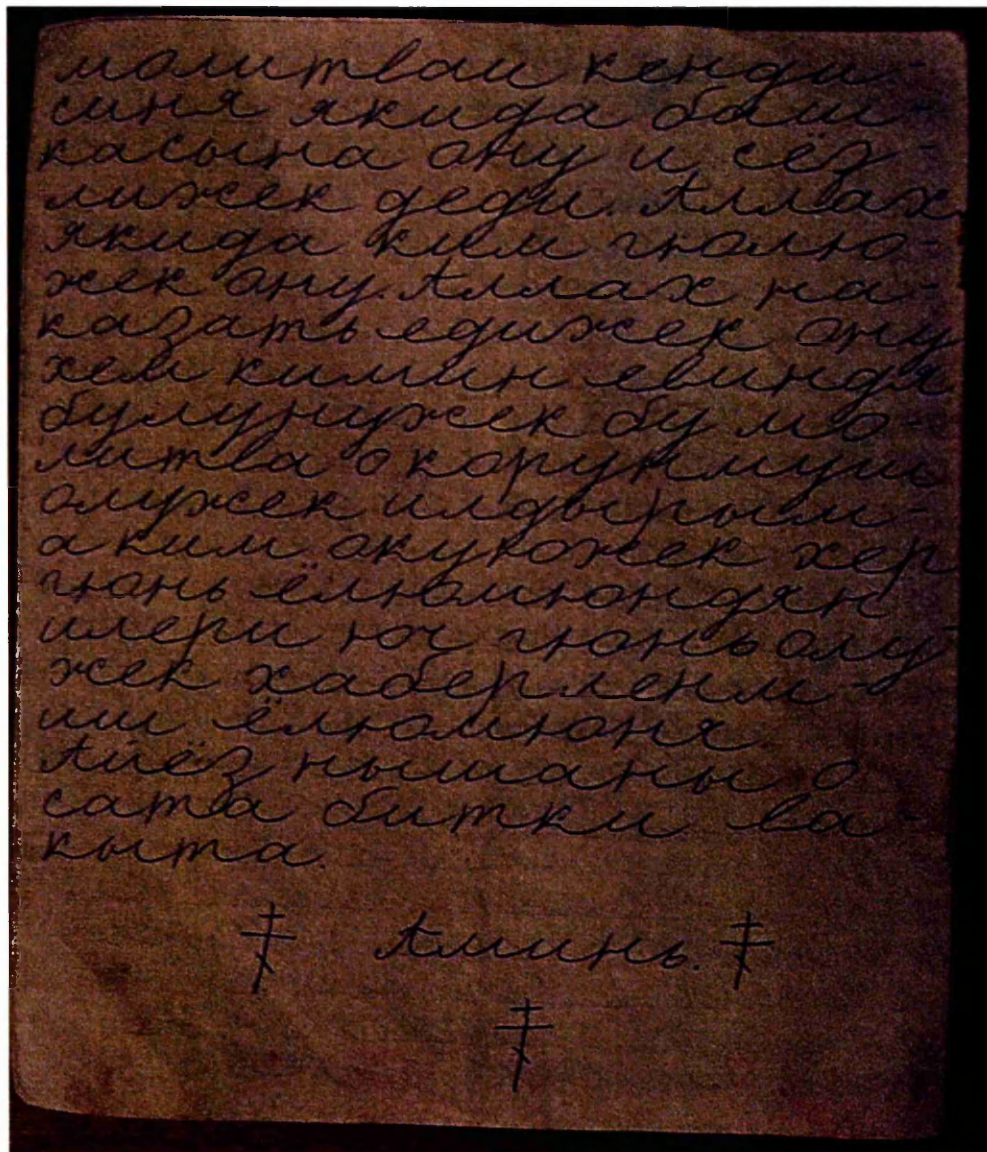 молитваи кенди-
синя якида баш-
касына ону и сёз-
лижек деди. Аллах
якида ким гюлю-
жек ону. Аллах на-
казать едижек ону
хем кимин евиндя
булунужек бу мо-
литва о корунмуш
олужек илдырым-
а ким окуюжек хер
гюнь ёлюмюндян
илери юч гюнь олу-
жек хаберленм-
иш ёлюмюня
Апёз нышаны о
сатва битки ва-
кыта.
Аминь.